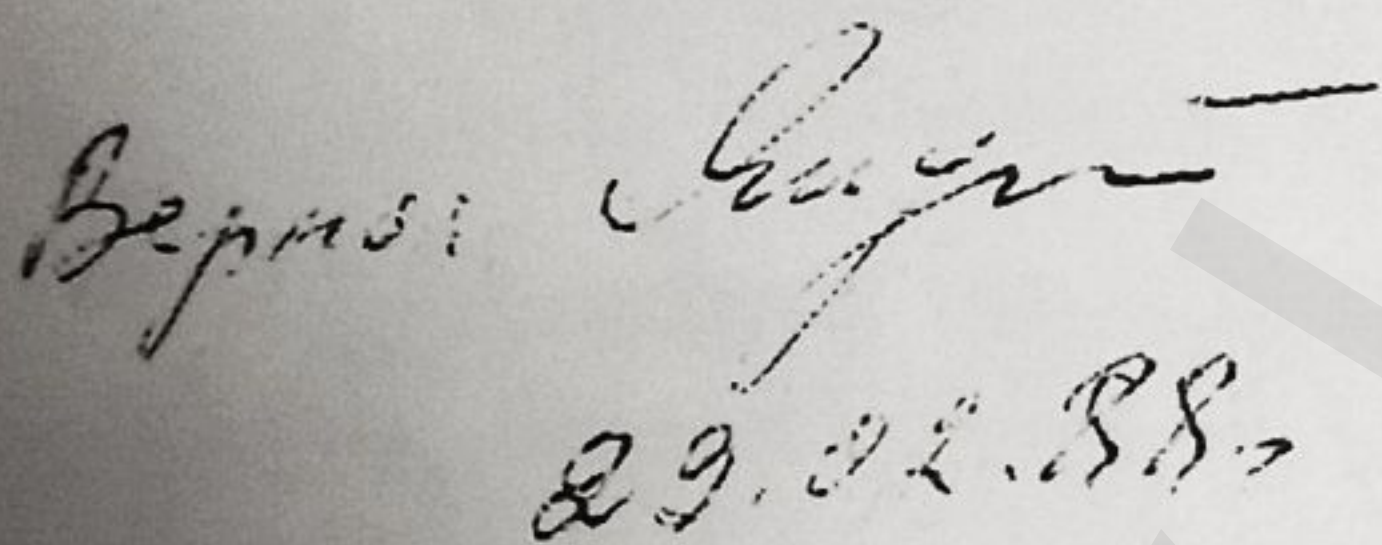 Верно:
29.02.88г.